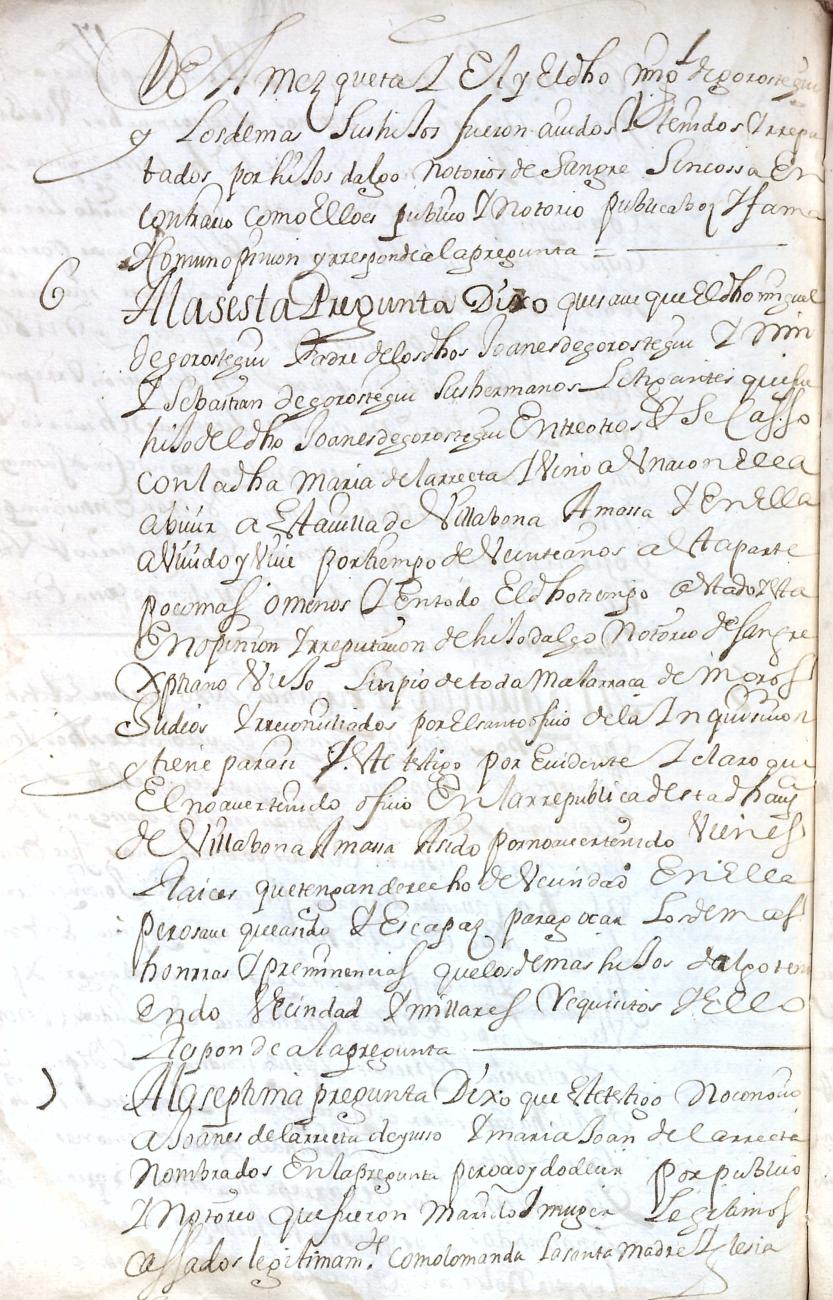 De Amezqueta I El y El dho migl de gorostegui
y Los demas Sus hiJos fueron auidos I tenidos I rrepu
tados por hiJos dalgo notorios de Sangre Sin cossa En
contrario como Ello es publico I notorio publica boz I fama
I Comun opinion y rresponde a la pregunta =
6 A la sesta Pregunta Dixo que saue que El dho miguel
de gorostegui Padre de los dhos Joanes de gorostegui I min
I Sebastian de gorostegui Sus hermanos Litigantes que fue
hiJo del dho Joanes de gorostegui Entre otros I Se Casso
con la dha maria de larreeta I Vino a Vnaion Ella
a biuir a Esta uilla de Villabona Amassa I En Ella
a Viuido y Viue por tiempo de Veinte años a Esta parte
poco mas o menos I En todo El dho tiempo a Estado I Esta
En opinion I rreputacion de hiJo dalgo Notorio de Sangre
Xptiano VieJo Limpio de toda mala rraca de moros
Judios I rreconciliados por El santo ofiçio de la Inquisicion
y tiene para si Este testigo por Euidente I claro que
El no auer tenido ofiçio En la rrepublica desta dha uiª
de Villabona Amassa A sido por no auer tenido Vienes
Raices que tengan derecho de Vecindad En Ella
pero saue que a sido I Es capaz para goçar Los demas
honrras I preminencias que los demas hiJos dalgo teni
endo Vecindad I millares Requisitos I Ello
Responde a la pregunta
7 A la septima pregunta Dixo que Este testigo No conocio
a Joanes de larreeta de yusso I maria Joan de larreeta
Nombrados En la pregunta pero a oydo decir Por publico
I Notorio que fueron Marido I muger Legitimos
cassados legitimamte. como lo manda La santa Madre Iglesia